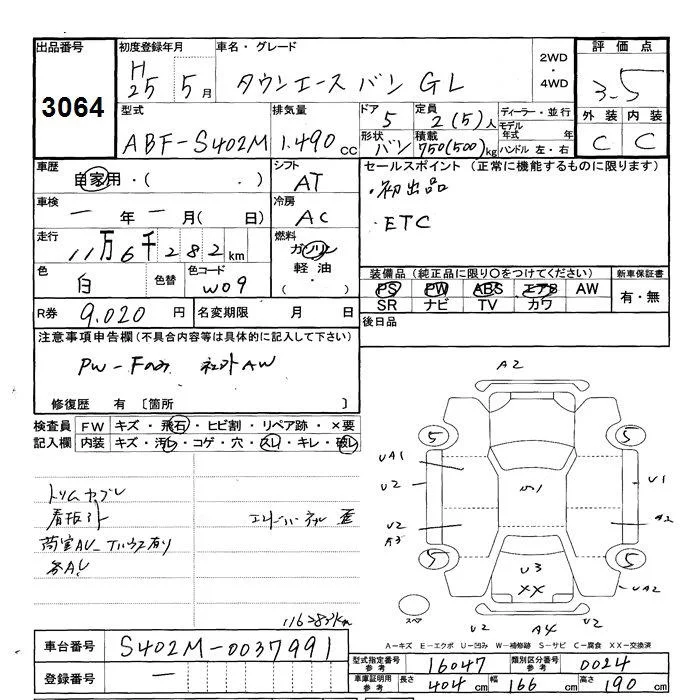 出品番号 初度登録年月 車名・グレード 2WD ・ 4WD 評価点
3064
H25 5月 タウンエース バン GL 3.5
型式 排気量 ドア 定員 ディーラー・並行 外装 内装
ABF-S402M 1.490cc 5 2(5)人 モデル年式 年 C C
形状 バン 積載 750(500)kg ハンドル 左・右
車歴 シフト セールスポイント (正常に機能するものに限ります)
自家用・( ) AT ・初出品
車検 冷房
ー年ー月( ) AC ・ETC
走行 燃料
11万6千282km ガソリン 軽油
色 色替 色コード 装備品(純正品に限り○をつけてください) 新車保証書
白 W09 PS PW ABS エアB AW 有・無
SR ナビ TV カワ
R券 9.020円 名変期限 月 日 後日品
注意事項申告欄(不具合内容等は具体的に記入して下さい)
PW-Fのみ 社外AW
修復歴 有 〔箇所 〕
検査員記入欄 FW キズ・飛石・ヒビ割・リペア跡・×要
内装 キズ・汚レ・コゲ・穴・スレ・キレ・破レ
トリムカブレ
看板汚
荷室AU
各AU
歪
116282km
A2
5 5
UA1 U1
U2 W1
U2 A2
A3
5 5
U3
XX UA2
スペア U2 A4 U2
A-キズ E-エクボ U-凹み W-補修跡 S-サビ C-腐食 XX-交換済
車台番号 S402M-0037991
型式指定番号参考 16047 類別区分番号参考 0024
登録番号 ー
車庫証明用参考 長さ 404cm 幅 166cm 高さ 190cm